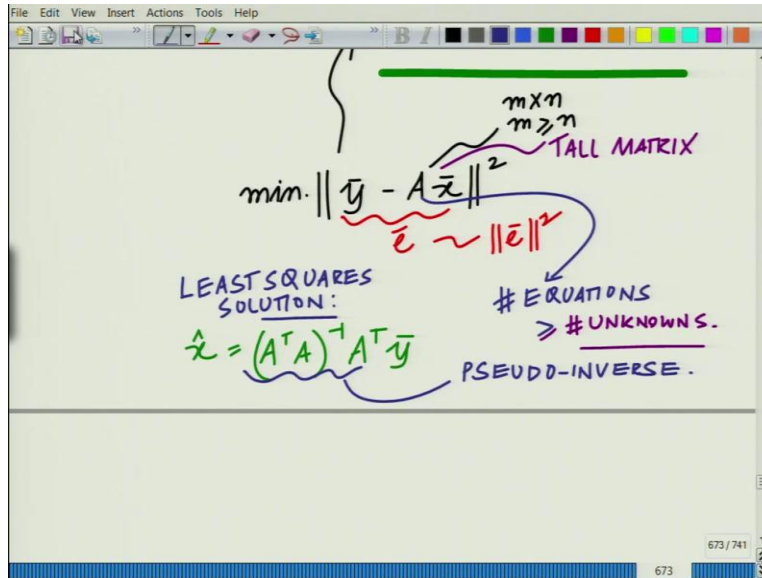 File Edit View Insert Actions Tools Help
B I
m×n
m ≥ n
TALL MATRIX
min. ‖ȳ - Ax̄‖²
ē ~ ‖ē‖²
LEAST SQUARES
SOLUTION:
# EQUATIONS
≥ # UNKNOWNS.
x̂ = (AᵀA)⁻¹Aᵀȳ
PSEUDO-INVERSE.
673 / 741
673